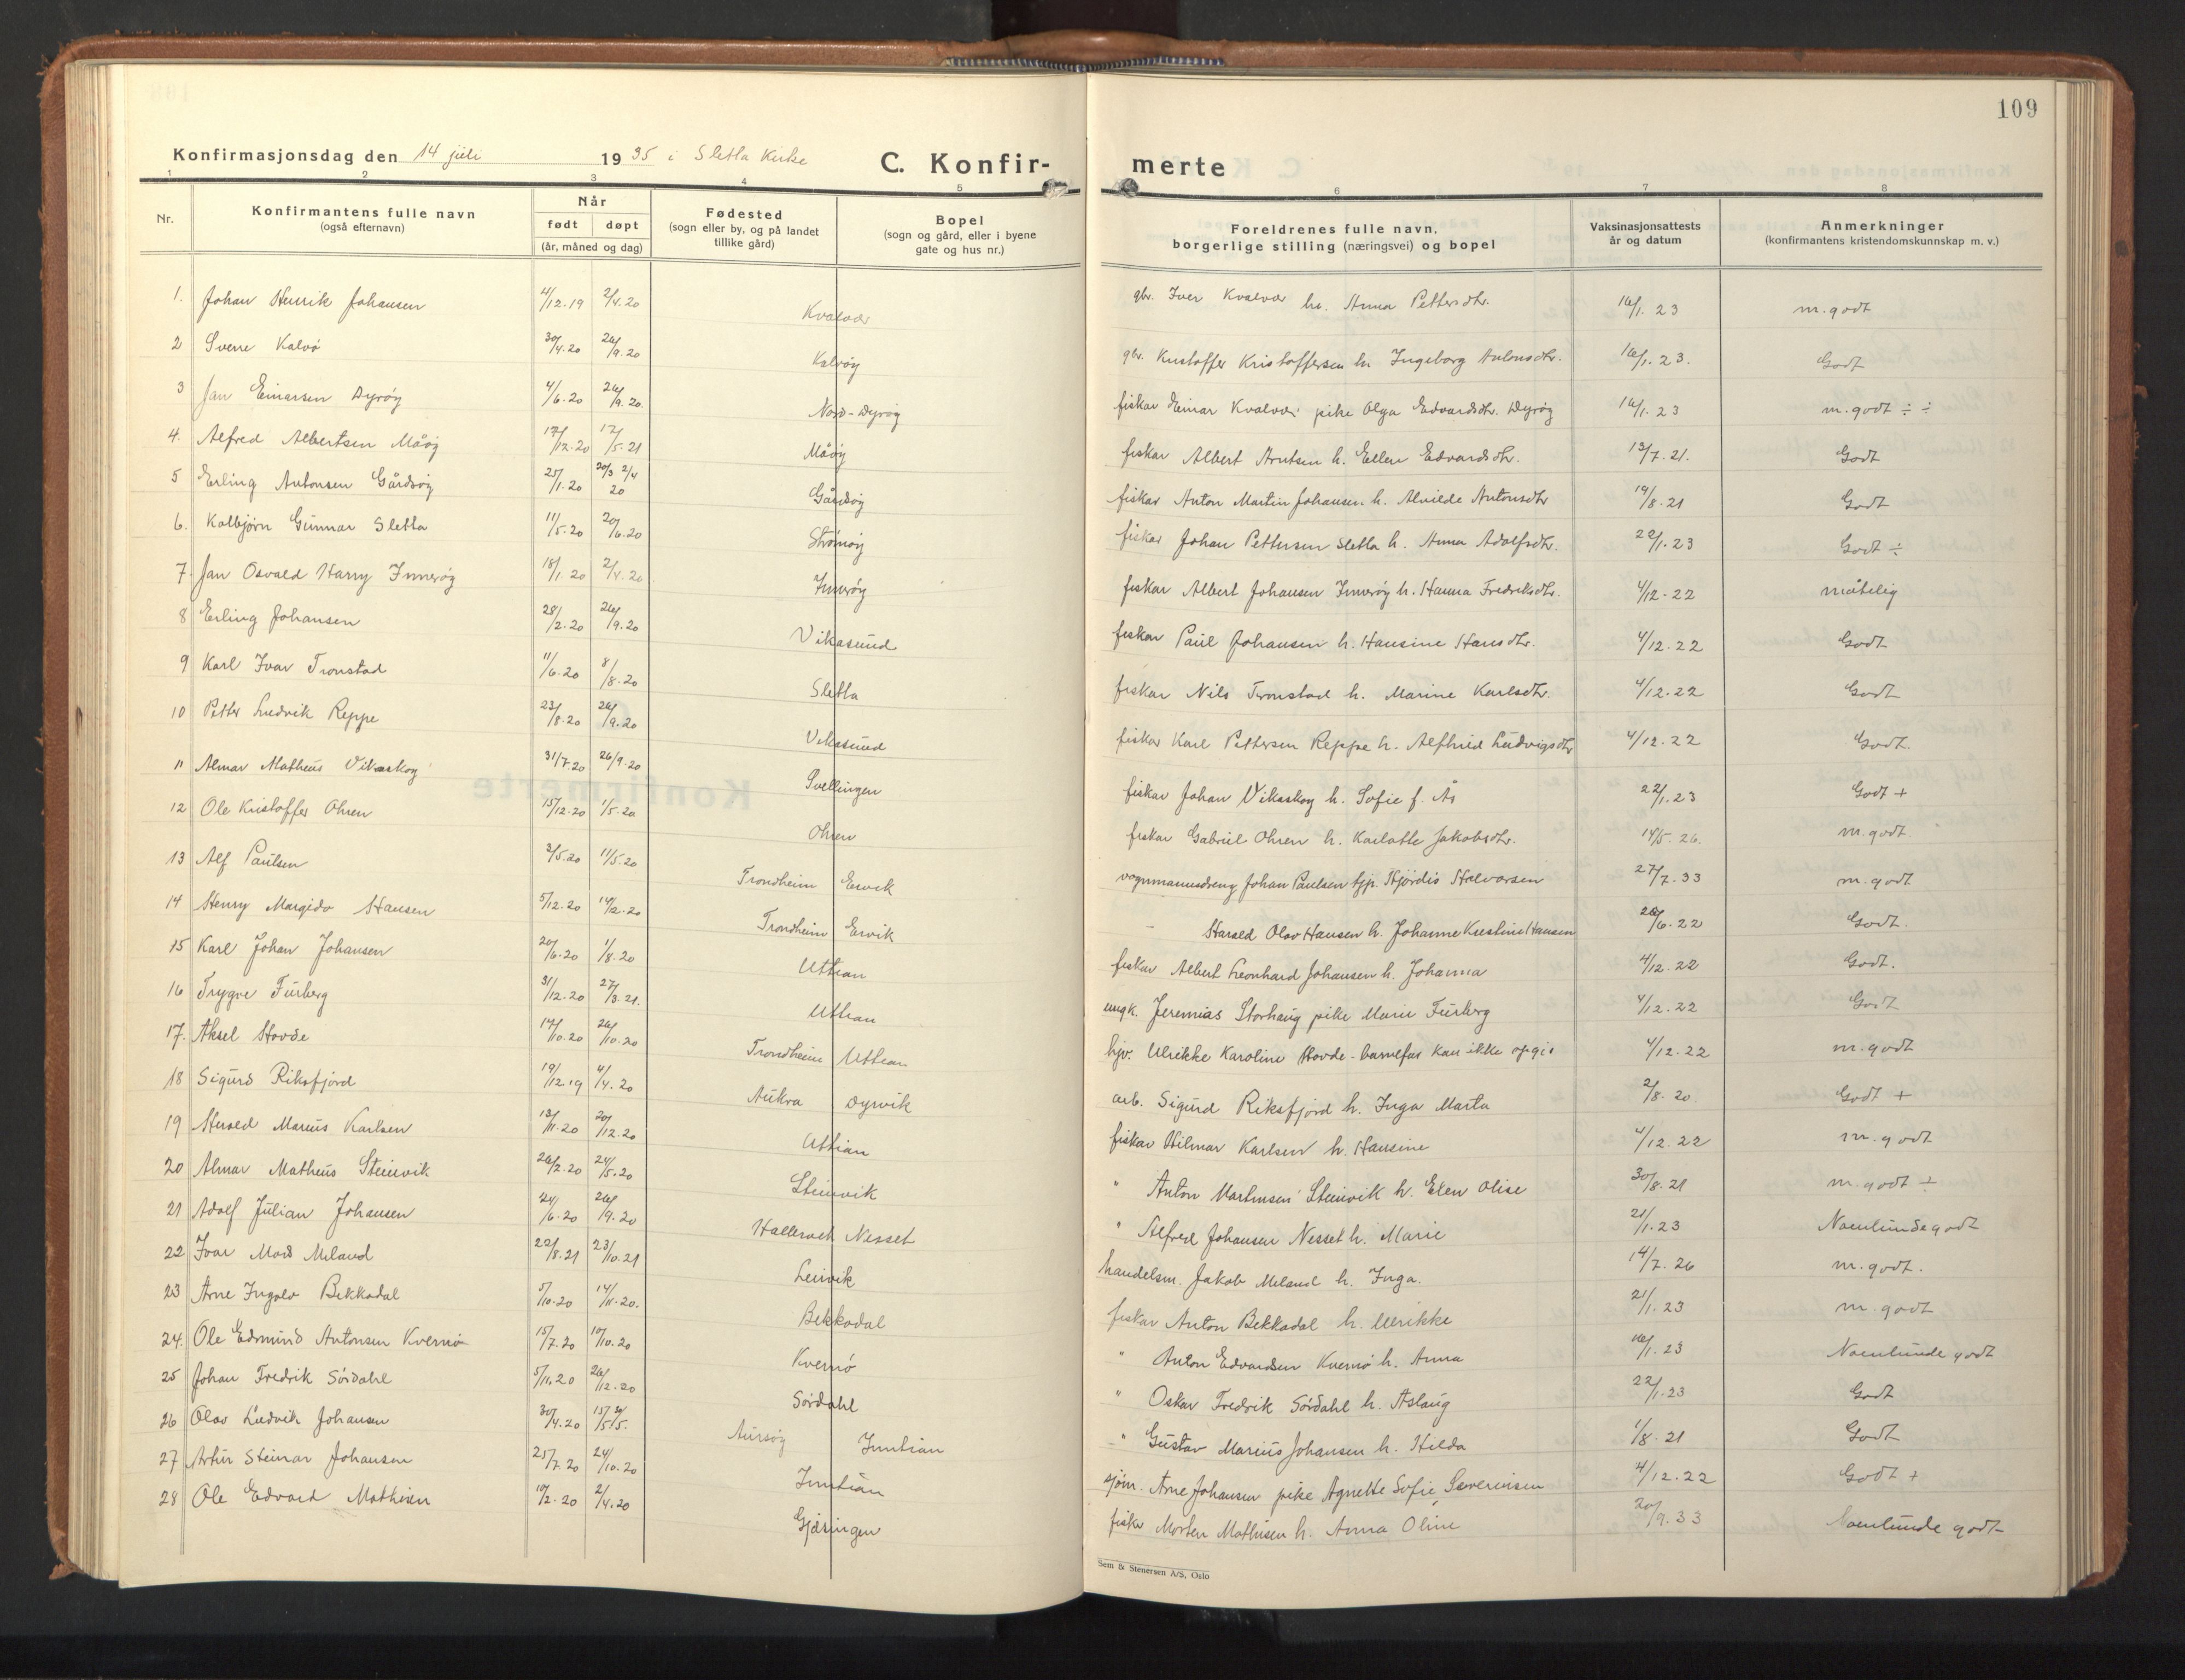 109
Konfirmasjonsdag den 14 juli 1935 i Sletta Kirke C. Konfir- merte
1 2 3 4 5 6 7 8
Nr. Konfirmantens fulle navn (også efternavn) Når født døpt (år, måned og dag) Fødested (sogn eller by, og på landet tillike gård) Bopel (sogn og gård, eller i byene gate og hus nr.) Foreldrenes fulle navn, borgerlige stilling (næringsvei) og bopel Vaksinasjonsattests år og datum Anmerkninger (konfirmantens kristendomskunnskap m. v.)
1. Johan Henrik Johansen 4/12.19 2/4.20 Kvalvær gbr. Iver Kvalvær h. Anna Pettersdtr. 16/1.23 m.godt
2 Sverre Kalvø 30/4.20 26/9.20 Kalvøy gbr. Kristoffer Kristoffersen h. Ingeborg Antonsdtr. 16/1.23. Godt
3 Jan Einarsen Dyrøy 4/6.20 26/9.20. Nord-Dyrøy fiskar Einar Kvalvær pike Olga Edvardsdtr. Dyrøy 16/1.23 m.godt ÷ ÷
4. Alfred Albertsen Måøy 17/12.20 17/5.21 Måøy fiskar Albert Arntsen h. Ellen Edvardsdtr. 13/7.21. Godt
5 Erling Antonsen Gårdsøy 25/1.20 20/3 2/4 20 Gårdsøy fiskar Anton Martin Johansen h. Alvilde Antonsdtr 19/8.21 Godt
6. Kolbjørn Gunnar Sletta 11/5.20 20/6.20 Strømøy fiskar Johan Pettersen Sletta h. Anna Adolfsdtr. 22/1.23 Godt ÷
7. Jan Osvald Harry Innerøy 18/1.20 2/4.20 Innerøy fiskar Albert Johansen Innerøy h. Hanna Fredriksdtr. 4/12.22 måtelig
8 Erling Johansen 28/2.20 26/9.20 Vikasund fiskar Paul Johansen h. Hansine Hansdtr. 4/12.22 Godt
9 Karl Ivar Tronstad 11/6.20 8/8.20 Sletta fiskar Nils Tronstad h. Marine Karlsdtr. 4/12.22 Godt
10 Petter Ludvik Reppe 23/8.20 26/9.20 Vikasund fiskar Karl Pettersen Reppe h. Alfhild Ludvigsdtr 4/12.22 Godt.
11 Almar Matheus Vikaskog 31/7.20 26/9.20 Svellingen fiskar Johan Vikaskog h. Sofie f. Ås 22/1.23 Godt +
12 Ole Kristoffer Ohren 15/12.20 1/5.20 Ohren fiskar Gabriel Ohren h. Karlotte Jakobsdtr. 14/5.26. m.godt.
13 Alf Paulsen 3/5.20 11/5.20 Trondheim Ervik vognmannsdreng Johan Paulsen tjp. Hjørdis Halvorsen 27/7.33 m.godt
14 Henry Margido Hansen 5/12.20 14/2.20 Trondheim Ervik - Harald Olav Hansen h. Johanne Kristine Hansen 28/6.22 Godt.
15 Karl Johan Johansen 20/6.20 1/8.20 Uttian fiskar Albert Leonhard Johansen h. Johanna 4/12.22 Godt.
16 Trygve Furberg 31/12.20 27/3.21. Uttian ungk. Jeremias Storhaug pike Marie Furberg 4/12.22 Godt
17. Aksel Hovde 17/10.20 26/10.20 Trondheim Uttian hjv. Ulrikke Karoline Hovde - barnefar kan ikke opgis 4/12.22 m.godt
18 Sigurd Riksfjord 19/12.19 4/4.20 Aukra Dyrvik arb. Sigurd Riksfjord h. Inga Marta 2/8.20. Godt +
19 Herald Marius Karlsen 13/11.20 20/12.20 Uttian fiskar Hilmar Karlsen h. Hansine 4/12.22 m.godt
20 Almar Matheus Steinvik 26/2.20 24/5.20 Steinvik " Anton Martinsen Steinvik h. Elen Olise 30/8.21 m.godt ÷
21 Adolf Julian Johansen 24/6.20 26/9.20 Hallervet Nesset " Alfred Johansen Nesset h. Marie 21/1.23 Noenlunde godt
22 Ivar Mod Meland 22/8.21 23/10.21 Leirvik handelsm. Jakob Meland h. Inga. 14/7.26 m.godt.
23 Arne Ingolv Bekkadal 5/10.20 14/11.20. Bekkadal fiskar Anton Bekkadal h. Ulrikke 21/1.23 m.godt
24. Ole Edmund Antonsen Kvernø 15/7.20 10/10.20 Kvernø " Anton Edvardsen Kvernø h. Anna 16/1.23 Noenlunde godt
25 Johan Fredrik Sørdahl 5/11.20 26/12.20 Sørdahl " Oskar Fredrik Sørdahl h. Aslaug 22/1.23 Godt
26 Olav Ludvik Johansen 30/4.20 Aursøy Inntian " Gustav Marius Johansen h. Hilda 1/8.21 Godt
27 Artur Steinar Johansen 25/7.20 24/10.20 Inntian sjøm. Arne Johansen pike Agnette Sofie Severinsen 4/12.22 Godt +
28 Ole Edvard Mathisen 10/2.20 2/4.20 Gjæsingen fisker Morten Mathisen h. Anna Oline 20/9.33 Noenlunde godt
Sem & Stenersen A/S, Oslo